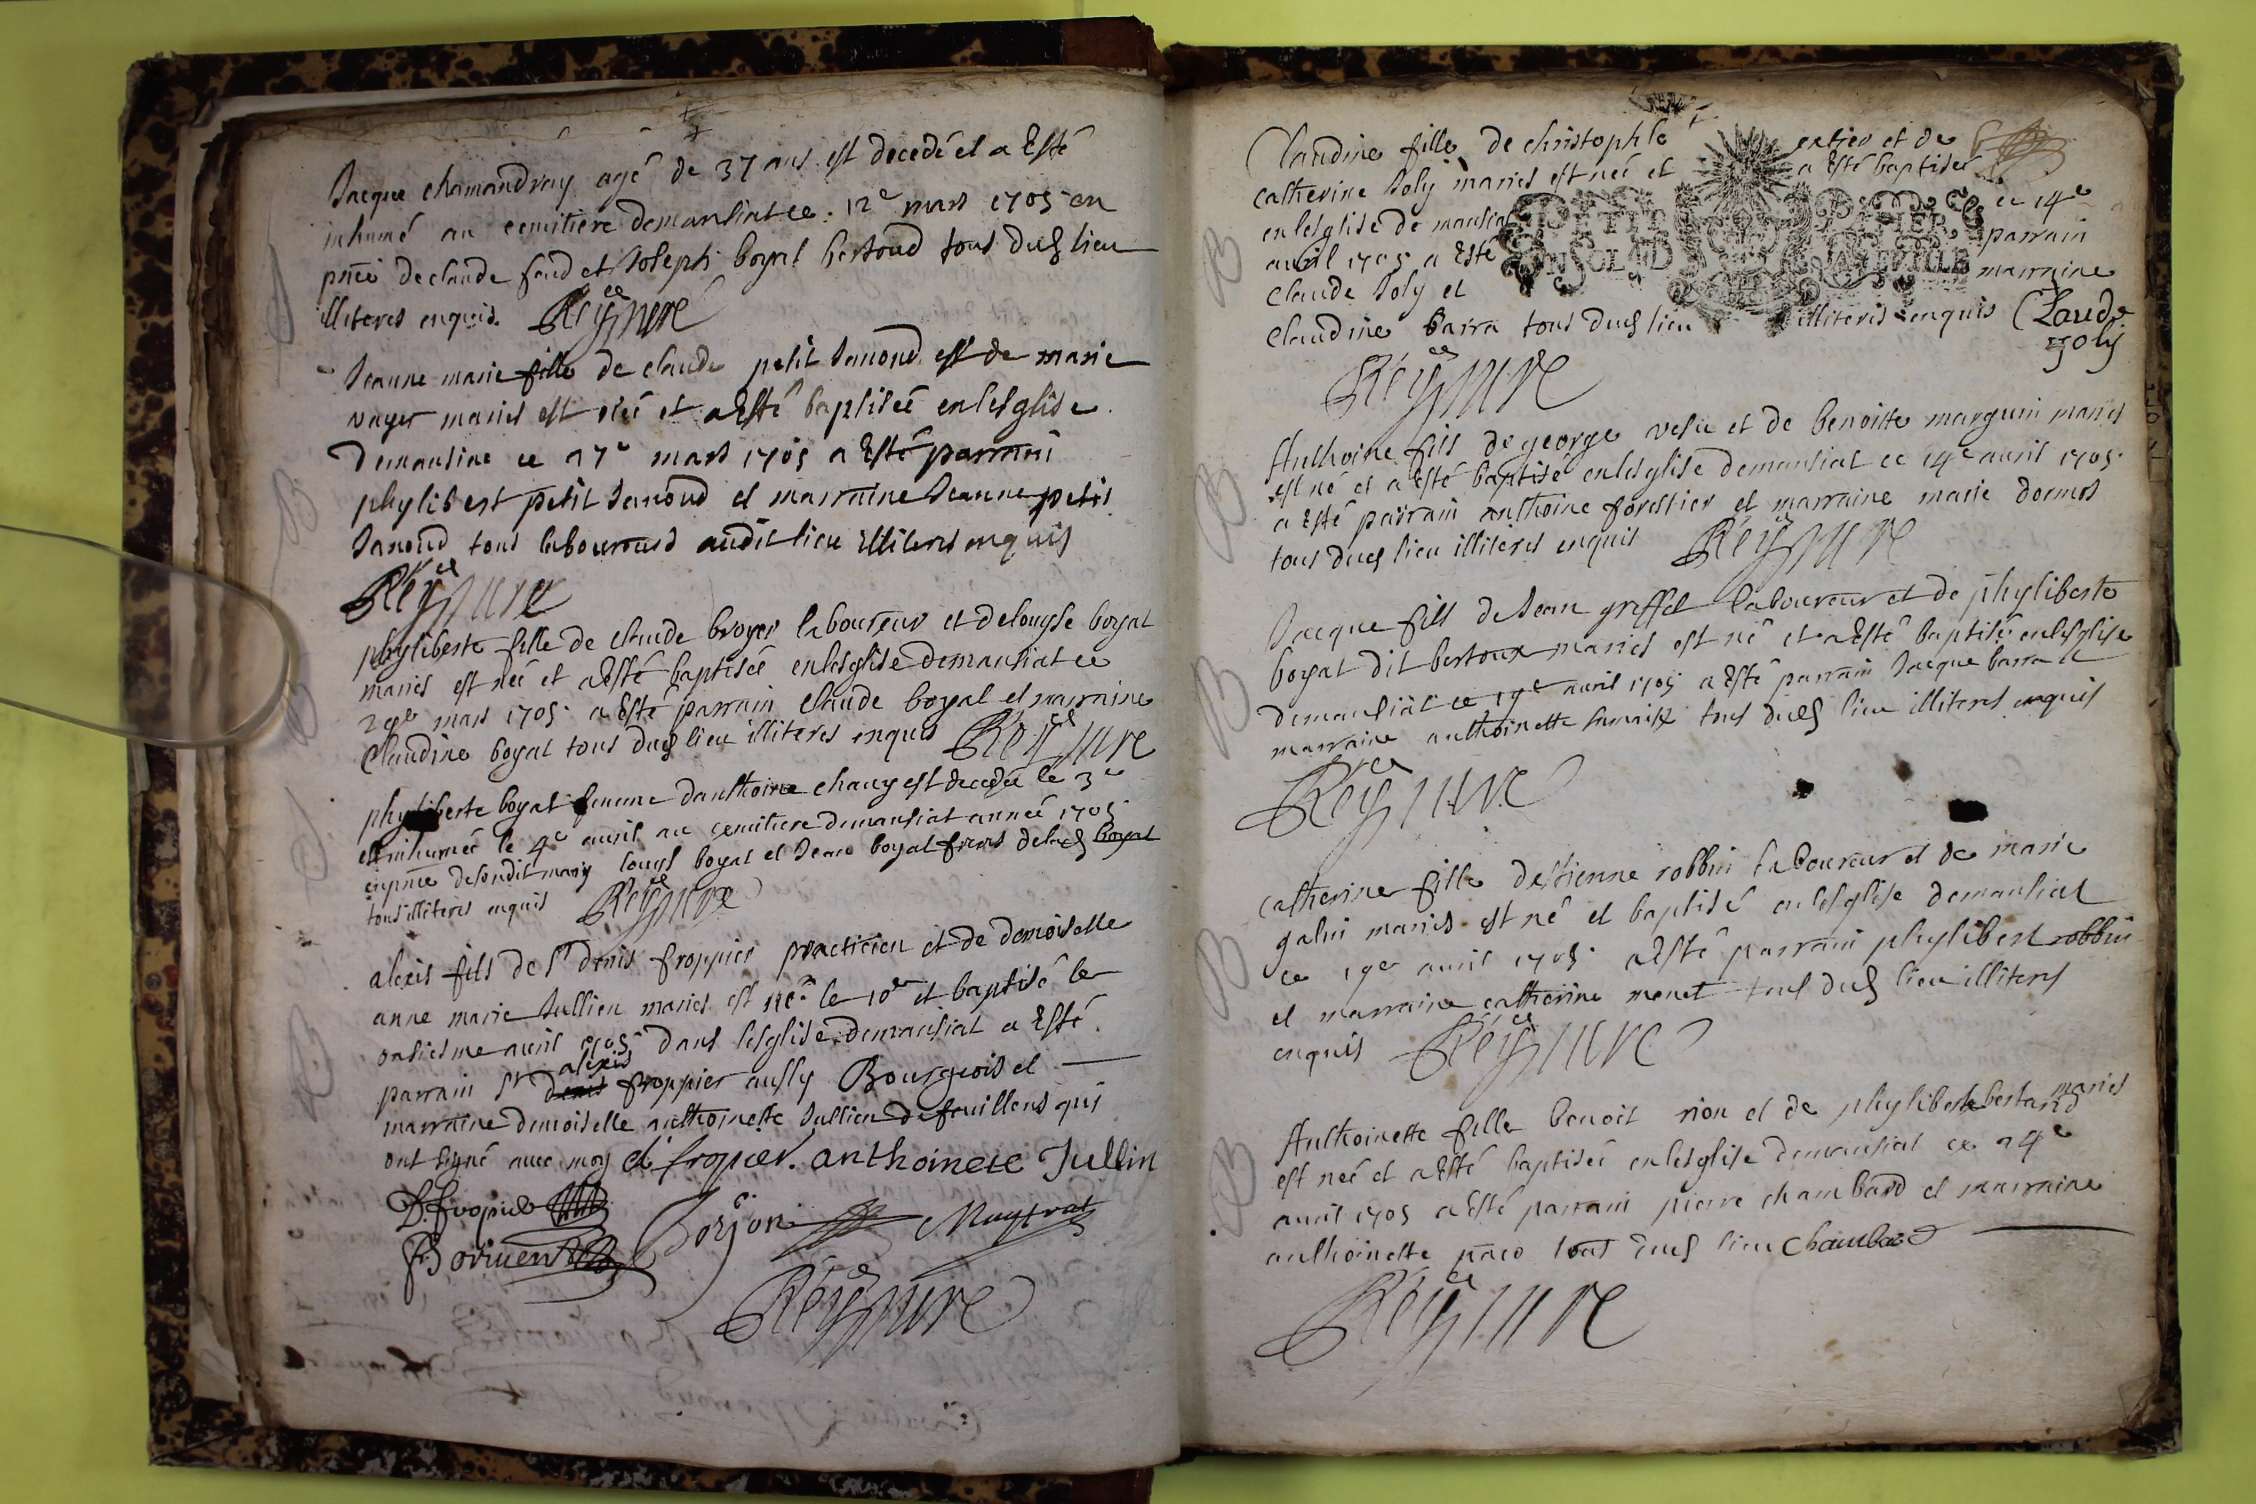 Jacque chamandray agé de 37 ans est decedé et a Esté
inhumé au cemitiere demansiat ce 12e mars 1705 en
pnce de claude feud et Joseph boyat bertoud tous dud lieu
illiteres enquis. Reÿ cure
Jeanne marie fille de claude petit Janond et de marie
voyer mariés est née et a Esté baptisée en lesglise
demansiat ce 17e mars 1705 a Esté parrain
phylibert petit Janond et marraine Jeanne petit
Janond tous laboureurs audit lieu Illiteres enquis
Reÿ cure
phyliberte fille de claude broyer laboureur et delouyse boyat
mariés est née et a Esté baptisée en lesglise demansiat ce
29e mars 1705 a Esté parrain claude boyat et marraine
Claudine boyat tous dud lieu illiteres enquis Reÿ cure
phyliberte boyat femme danthoine chaury est decedée le 3e
et inhumée le 4e avril au cemitiere demansiat année 1705
en pnce desondit mary louys boyat et Jean boyat freres delad boyat
tous illiteres enquis Reÿ cure
alexis fils de Sr denis froppier practicien et de demoiselle
anne marie Jullien mariés est né le 10e et baptisé le
onsiesme avril 1705 dans lesglise demansiat a Esté
alexis
parrain Sr denis froppier aussy Bourgeois et
marraine demoiselle anthoinette Jullien de feuillens qui
ont signé avec moy A fropier. anthoinete Jullin
D. fropier
Borjon
Boriuent
Reÿ cure
B
Claudine fille de christophle
catherine Joly mariés est née et a Esté baptisée
en lesglise de mansiat ce 14e
avril 1705 a Esté parrain
claude Joly et marraine
Claudine barra tous dud lieu illiteres enquis Claude
Joly
Reÿ cure
B
Anthoine fils de george vesu et de benoitte marguin mariés
est né et a Esté baptisé en lesglise demansiat ce 14e avril 1705
a Esté parrain anthoine forestier et marraine marie dormos
tous dud lieu illiteres enquis Reÿ cure
B
Jacque fils de Jean greffet laboureur et de phyliberte
boyat dit bertoux mariés est né et a Esté baptisé en lesglise
demansiat ce 19e avril 1705 a Esté parrain Jacque barra et
marraine anthoinette tous dud lieu illiteres enquis
Reÿ cure
B
catherine fille destienne robbin laboureur et de marie
galin mariés est né et baptisé en lesglise demansiat
ce 19e avril 1705 a Esté parrain phylibert robbin
et marraine catherine monet tous dud lieu illiteres
enquis Reÿ cure
B
Anthoinette fille benoit rion et de phyliberte bertand mariés
est née et a Esté baptisée en lesglise demansiat ce 24e
avril 1705 a Esté parrain pierre chambard et marraine
anthoinette tous dud lieu Chambard
Reÿ cure